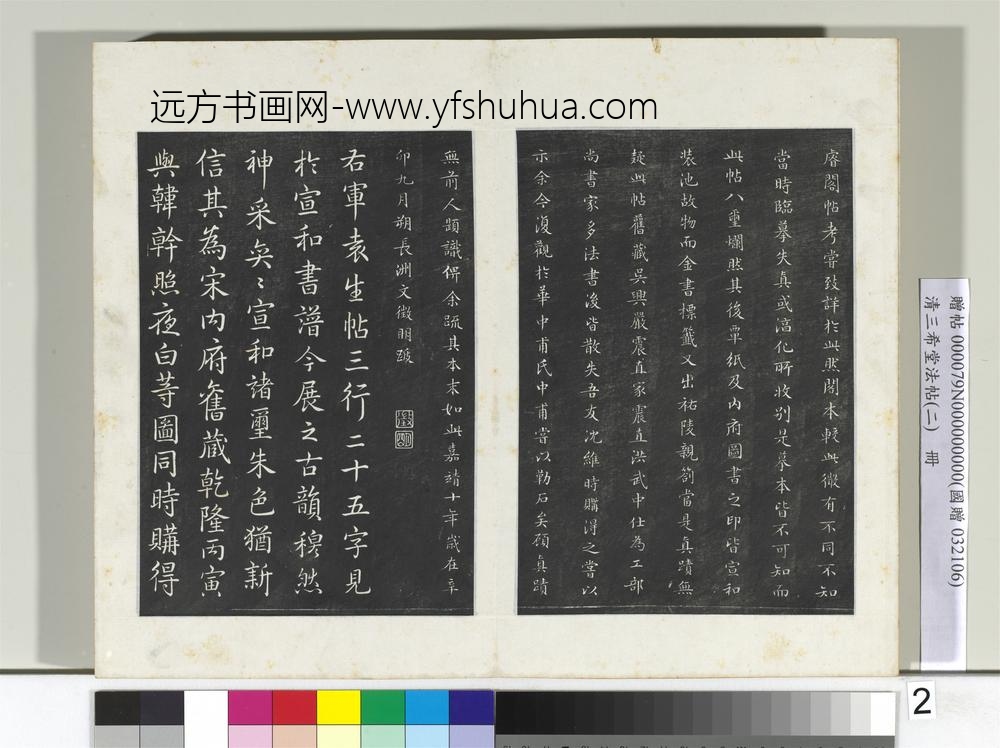 远方书画网-www.yfshuhua.com
睿閣帖考嘗致詳於此然閣本較此微有不同不知
當時臨摹失真或淳化所收別是摹本皆不可知而
此帖八璽爛然其後覃紙及內府圖書之印皆宣和
裝池故物而金書標籤又出祐陵親劄當是真蹟無
疑此帖舊藏吳興嚴震直家震直洪武中仕為工部
尚書家多法書後皆散失吾友沈維時購得之嘗以
示余今復觀於華中甫氏中甫嘗以勒石矣顧真蹟
無前人題識俾余疏其本末如此嘉靖十年歲在辛
卯九月朔長洲文徵明跋
徵
明
右軍袁生帖三行二十五字見
於宣和書譜今展之古韻穆然
神采奕〻宣和諸璽朱色猶新
信其為宋內府舊藏乾隆丙寅
與韓幹照夜白等圖同時購得
贈帖 000079N000000000(國贈 032106)
清三希堂法帖(二) 冊
2